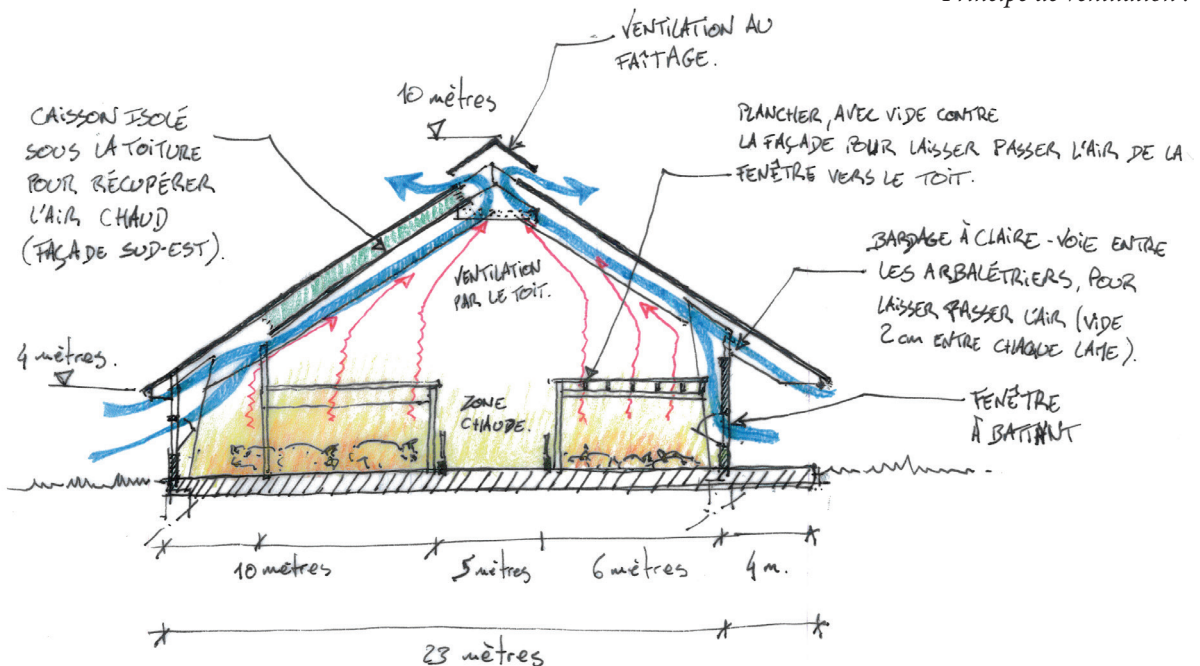 Principe de ventilation
VENTILATION AU
FAÎTAGE.
10 mètres
CAISSON ISOLÉ
SOUS LA TOITURE
POUR RÉCUPÉRER
L'AIR CHAUD
(FAÇADE SUD-EST).
PLANCHER, AVEC VIDE CONTRE
LA FAÇADE POUR LAISSER PASSER L'AIR DE LA
FENÊTRE VERS LE TOIT.
BARDAGE À CLAIRE-VOIE ENTRE
LES ARBALÉTRIERS, POUR
LAISSER PASSER L'AIR (VIDE
2 cm ENTRE CHAQUE LAME).
VENTILATION
PAR LE TOIT.
4 mètres.
ZONE
CHAUDE.
FENÊTRE
À BATTANT
10 mètres
5 mètres
6 mètres
4 m.
23 mètres